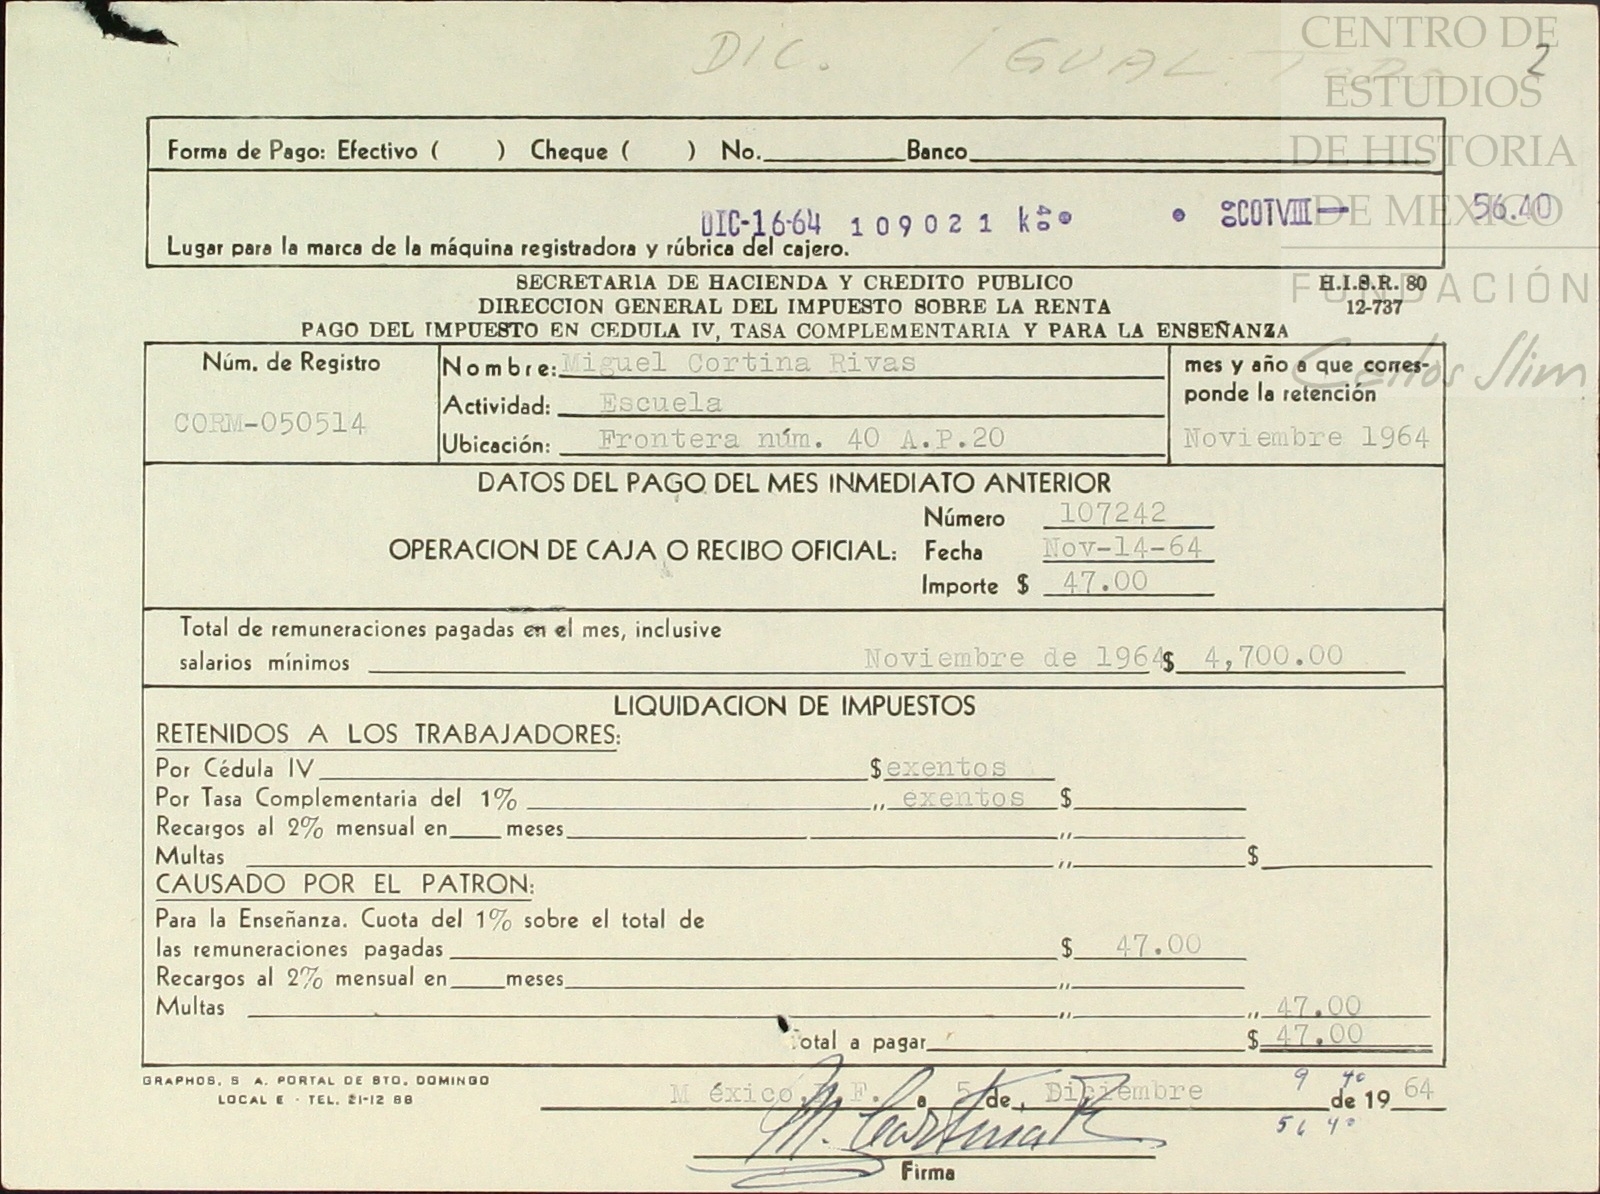 DIC. IGUAL TODO 2
CENTRO DE
ESTUDIOS
DE HISTORIA
DE MEXICO
FUNDACIÓN
Carlos Slim
Forma de Pago: Efectivo ( ) Cheque ( ) No. Banco
DIC-16-64 109021 56.40
Lugar para la marca de la máquina registradora y rúbrica del cajero.
SECRETARIA DE HACIENDA Y CREDITO PUBLICO H.I.S.R. 80
DIRECCION GENERAL DEL IMPUESTO SOBRE LA RENTA 12-737
PAGO DEL IMPUESTO EN CEDULA IV, TASA COMPLEMENTARIA Y PARA LA ENSEÑANZA
Núm. de Registro
CORM-050514
Nombre: Miguel Cortina Rivas
Actividad: Escuela
Ubicación: Frontera núm. 40 A.P.20
mes y año a que corres-
ponde la retención
Noviembre 1964
DATOS DEL PAGO DEL MES INMEDIATO ANTERIOR
Número 107242
OPERACION DE CAJA O RECIBO OFICIAL: Fecha Nov-14-64
Importe $ 47.00
Total de remuneraciones pagadas en el mes, inclusive
salarios mínimos Noviembre de 1964 $ 4,700.00
LIQUIDACION DE IMPUESTOS
RETENIDOS A LOS TRABAJADORES:
Por Cédula IV $ exentos
Por Tasa Complementaria del 1% ,, exentos $
Recargos al 2% mensual en meses ,,
Multas ,, $
CAUSADO POR EL PATRON:
Para la Enseñanza. Cuota del 1% sobre el total de
las remuneraciones pagadas $ 47.00
Recargos al 2% mensual en meses ,,
Multas ,, ,, 47.00
Total a pagar $ 47.00
GRAPHOS, S A. PORTAL DE STO. DOMINGO
LOCAL E - TEL. 21-12 88
9 40
México,D.F. a 5 de Diciembre de 19 64
56 40
M. Cortina R
Firma